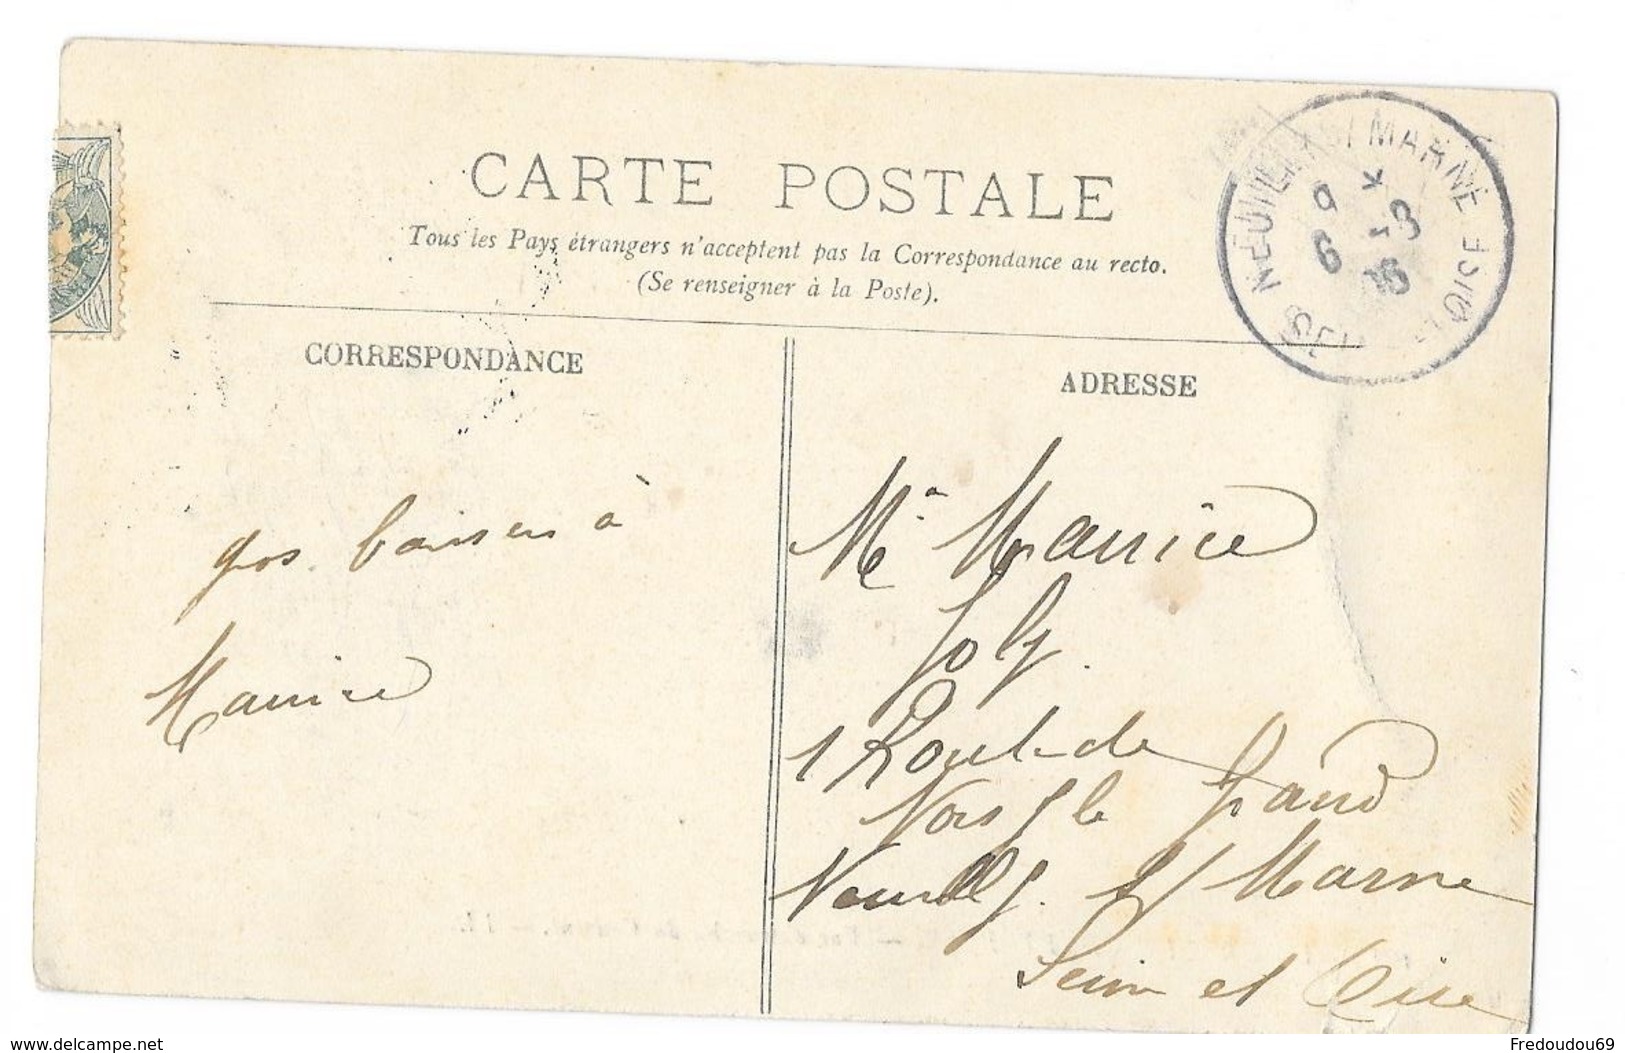 CARTE POSTALE
Tous les Pays étrangers n'acceptent pas la Correspondance au recto.
(Se renseigner à la Poste).
CORRESPONDANCE
ADRESSE
NEUILLY-S/MARNE
SEINE-ET-OISE
gos baisers à
Maurice
Maurice
Joly.
1 Route de
Noisy le Grand
Neuilly. S/ Marne
Seine et Oise
www.delcampe.net
Fredoudou69